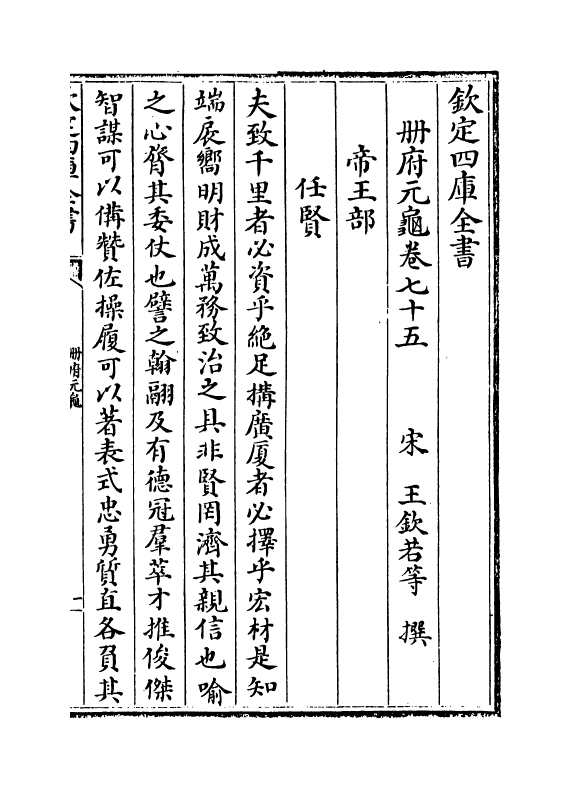 欽定四庫全書
冊府元龜卷七十五　宋　王欽若等　撰
帝王部
任賢
夫致千里者必資乎絶足搆廣厦者必擇乎宏材是知
端扆嚮明財成萬務致治之具非賢罔濟其親信也喻
之心膂其委仗也譬之翰翮及有德冠羣萃才推俊傑
智謀可以備贊佐操履可以著表式忠勇質直各負其
欽定四庫全書
冊府元龜
一